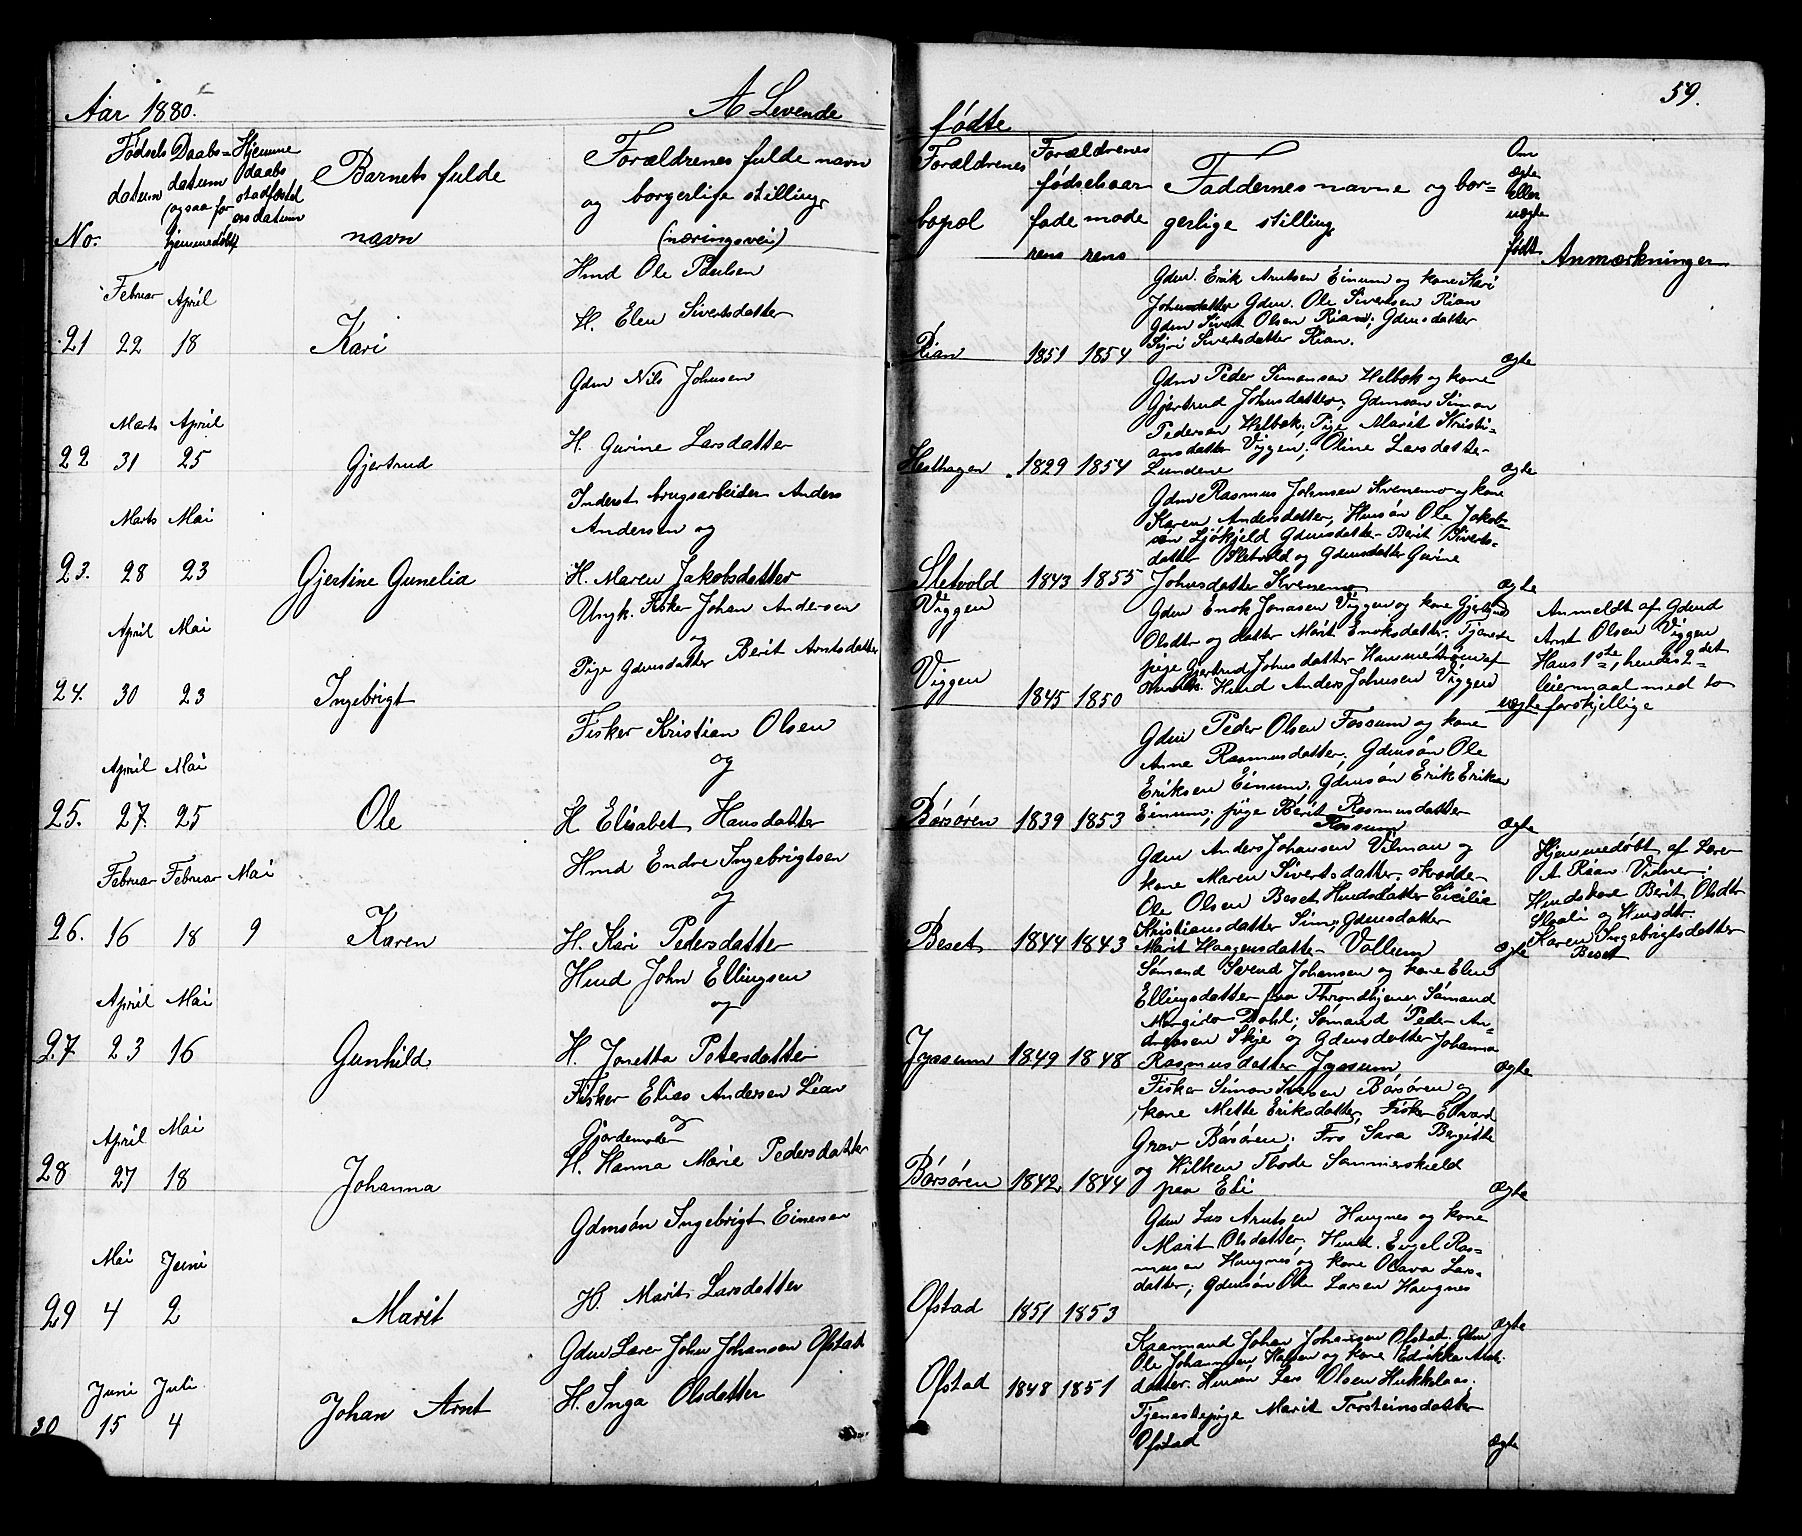 Aar 1880.
A Levende
Fødsels datum
Daabs datum ogsaa for hjemmedøbt
Hjemme daabs stadfæstelsesdatum
Barnets fulde navn
Forældrenes fulde navn
og borgerlige stilling
(næringsvei)
No.
Februar April
21 22 18 Kari
Hmd Ole Paulsen
H. Elen Sivertsdatter
Marts April
22 31 25 Gjertrud
Gdm Nils Johnsen
H. Gurine Larsdatter
Marts Mai
23. 28 23 Gjertine Gunelia
Inderst brugsarbeider Anders
Andersen og
H. Maren Jakobsdatter
April Mai
24. 30 23 Ingebrigt
Ungk. Fisker Johan Andersen
og
Pige Gdmsdatter Berit Arntsdatter
April Mai
25. 27. 25 Ole
Fisker Kristian Olsen
og
H Elisabet Hansdatter
Februar Februar Mai
26. 16 18 9 Karen
Hmd Endre Ingebrigtsen
og
H. Kari Pedersdatter
April Mai
27 23 16 Gunhild
Hmd John Ellingsen
og
H. Jonetta Petersdatter
April Mai
28 27 18 Johanna
Fisker Elias Andersen Lian
og
Gjordemoder
H. Hanna Marie Pedersdatter
Mai Juni
29 4 2 Marit
Gdmsøn Ingebrigt Einersen
H. Marit Larsdatter
Juni Juli
30 15 4 Johan Arnt
Gdm Lærer John Johansen Ofstad
H. Inga Olsdatter
59.
fødte
Forældrenes bopæl
Forældrenes fødselsaar
faderens moderens
Faddernes navne og borgerlige stilling
Om ægte eller uægte født
Anmærkninger
Gdm. Erik Arntsen Einum og kone Kari
Johnsdatter Gdm. Ole Sivertsen Rian
Gdm Sivert Olsen Rian; Gdmsdatter
Rian 1851 1854 Siri Sivertsdatter Rian. ægte
Gdm Peder Simonsen Helbok og kone
Gjertrud Johnsdatter; Gdmsøn Simon
Pedersen Helbok; Pige Marit Kristi-
ansdatter Viggen; Oline Larsdatter
Hesthagen 1829 1854 Lundene ægte
Gdm Rasmus Johnsen Kvenemo og kone
Karen Andersdatter, Hmsøn Ole Jakob-
sen Sjøkjeld Gdmsdatter Berit Siverts-
datter Sletvold og Gdmsdatter Gurine
Sletvold 1843 1855 Johnsdatter Kvenemo ægte
Viggen
Gdm Enok Jonasen Viggen og kone Gjertrud
Olsdtr og datter Marit Enoksdatter. Tjeneste
pige Gjertrud Johnsdatter
Hmd Anders Johnsen Viggen
Viggen 1845 1850 uægte
Anmeldt af Gdmd
Arnt Olsen Viggen
Hans 1ste, hendes 2det
leiermaal med to
forskjellige
Gdm Peder Olsen Fossum og kone
Anne Rasmusdatter; Gdmsøn Ole
Eriksen Einum; Gdmsøn Erik Eriksen
Børsøren 1839 1853 Einum; pige Berit Rasmusdatter
Fossum ægte
Gdm Anders Johansen Vilman og
kone Maren Sivertsdatter; skrædder
Ole Olsen Beset Hmdsdatter Cicilie
Kristiansdatter Sim; Gdmsdatter
Beset 1844 1843 Marit Haagensdatter Vollum ægte
Hjemmedøbt af Lærer
A Rian Vidner:
Hmdskone Berit Olsdtr
og Hmdsdtr.
Karen Ingebrigtsdatter
Beset
Sømand Svend Johansen og kone Elen
Ellingsdatter fra Throndhjem Sømand
Dahl; Sømand Peder An-
dreasen Skje og Gdmsdatter Johanna
Jyssum 1849 1848 Rasmusdatter Jyssum ægte
Fisker Simon Iversen Børsøren og
kone Mette Eriksdatter, Fisker Edvard
Grav Børsøren. Frø Sara Bergitte
og Hilken Thode Sommerskield
Børsøren 1842 1844 paa Eli ægte
Gdm Lars Arntsen Haugnes og kone
Marit Olsdatter, Hmd. Engel Ras-
musen Haugnes og kone Olava Lars-
datter; Gdmsøn Ole Larsen Haugnes
Ofstad 1851 1853 ægte
Kaarmand Johan Johansen Ofstad. Gdm
Ole Johannsen Halsen og kone Edrikka Arnts-
Ofstad 1848 1851 datter. Hmsøn Lars Olsen Hukkelaas.
Tjenestepige Marit Torsteinsdatter
Ofstad ægte